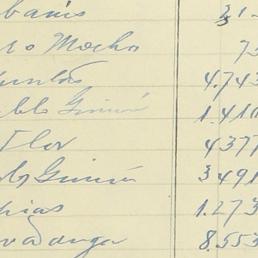 banis 31
ro Mocho 73
untos 4.743
blo Guiné 1.410
Flor 4377
b Guiné 3491
hias 1.273
vadonga 8.553